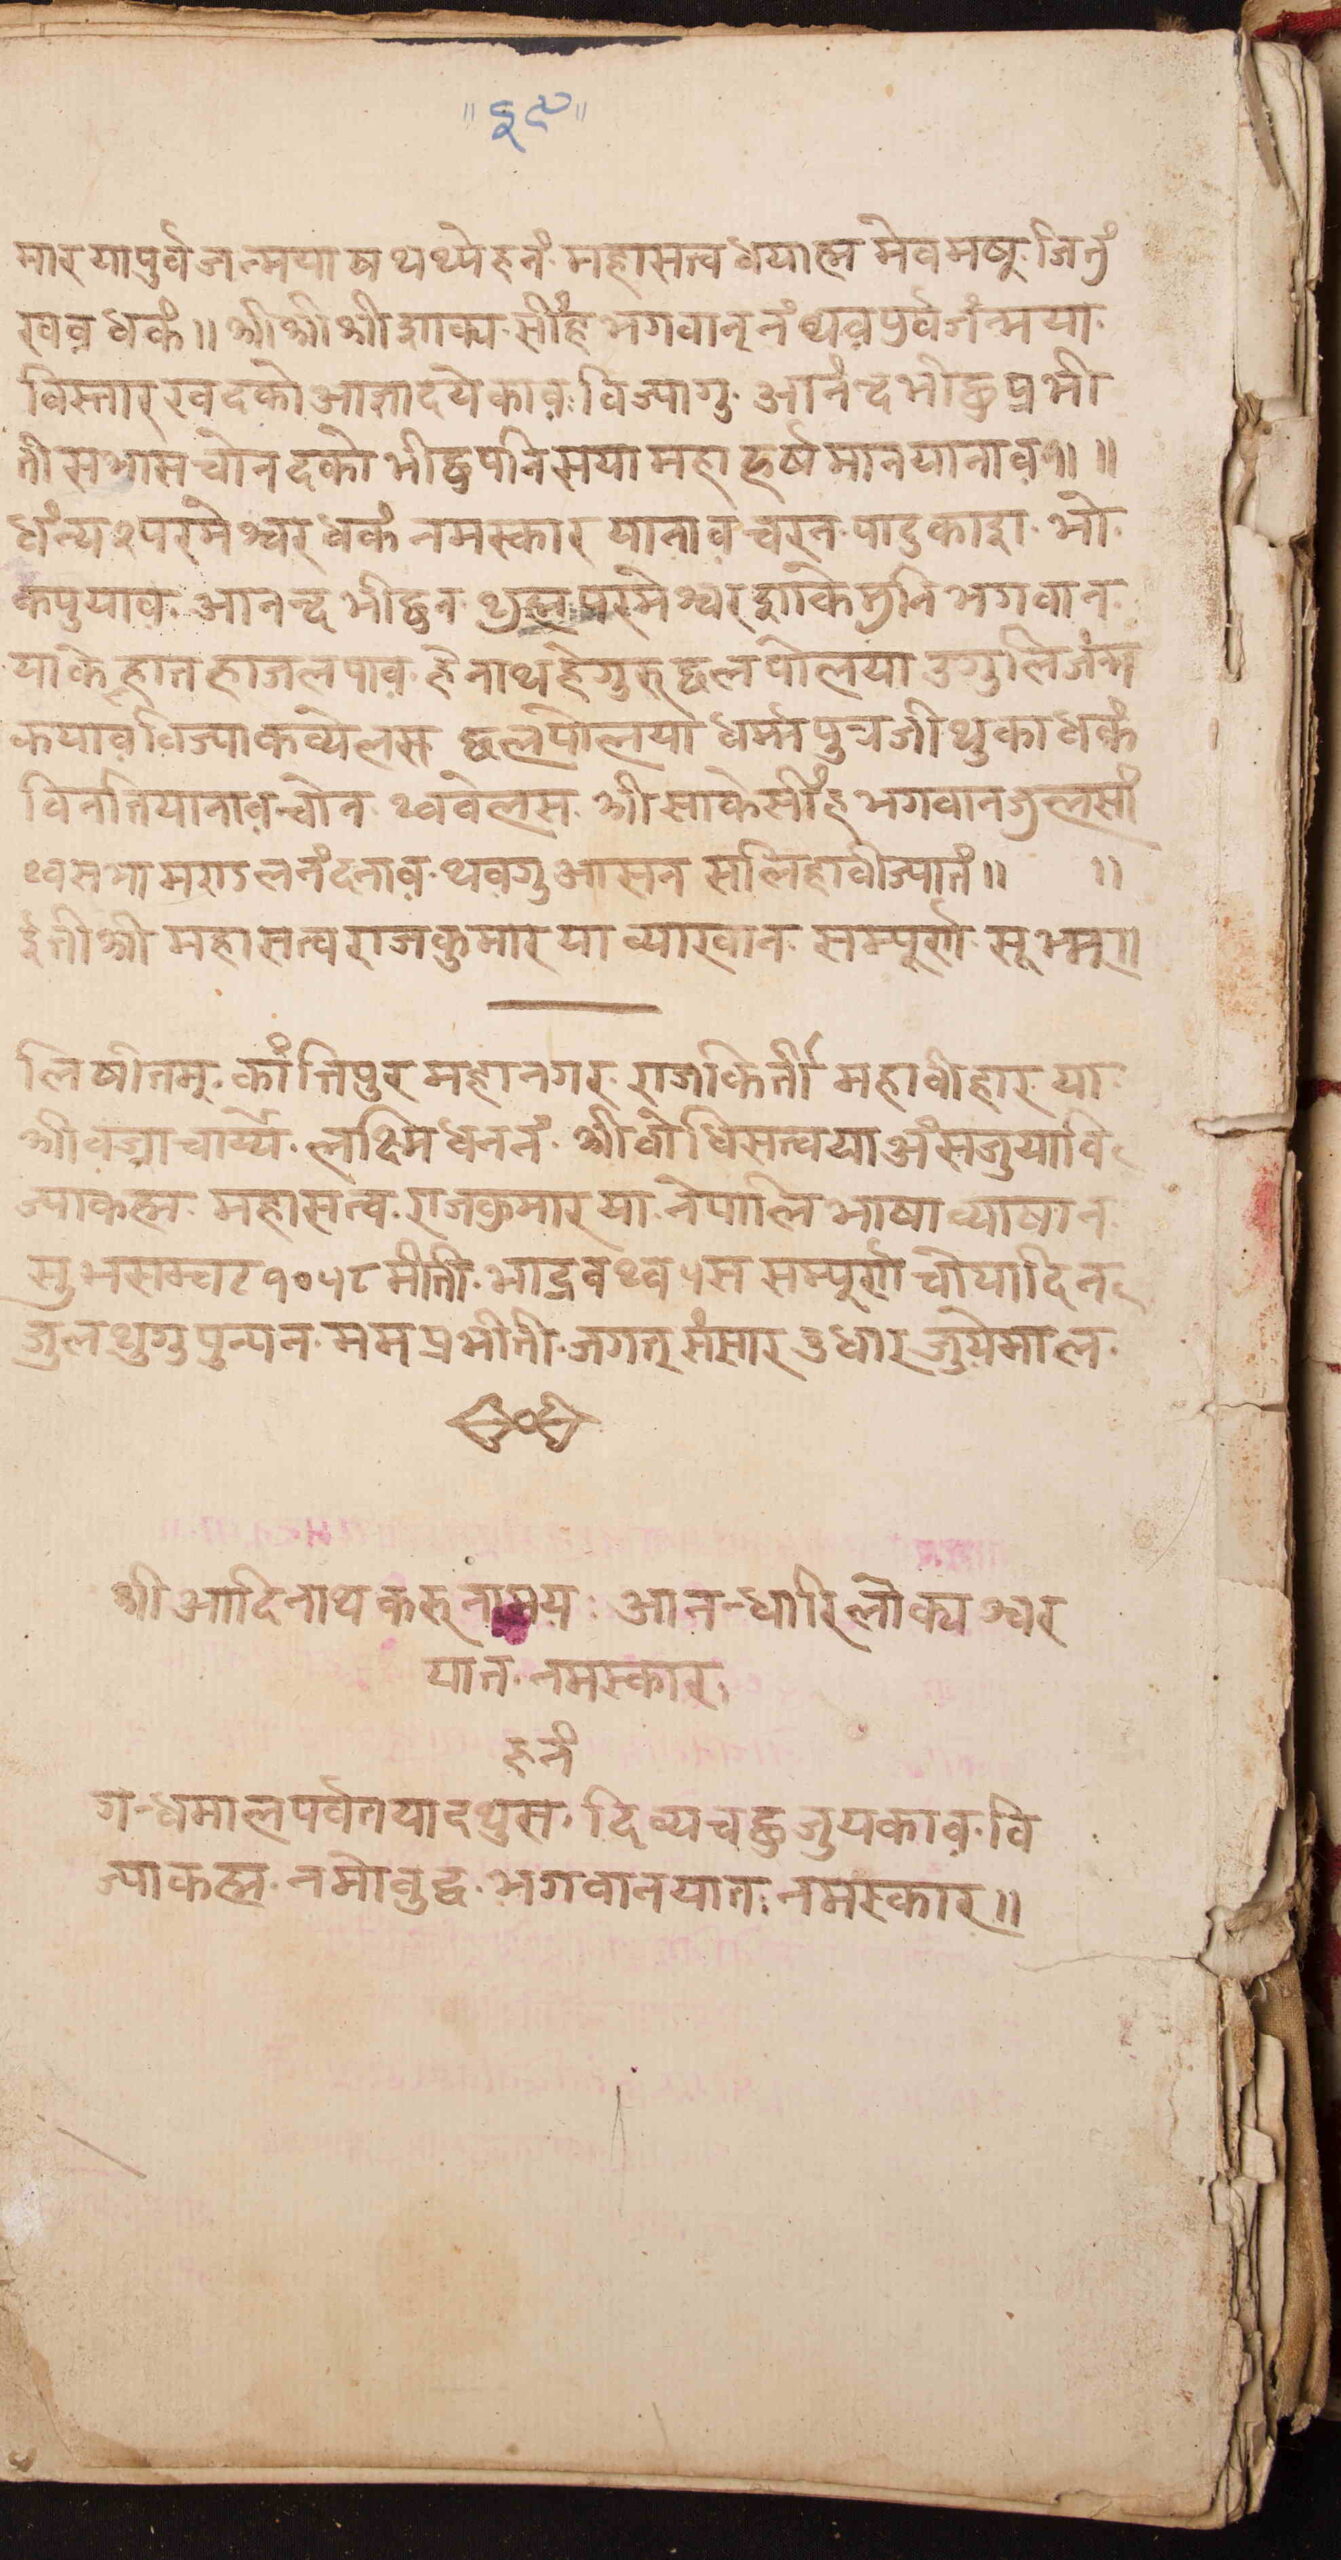 ॥ ३९ ॥
मार यापुर्व जन्मया ष थथ्ये हनं महासत्व धयाह्म मेव मषू जितुं
खव़ धकं ॥ श्रीश्रीश्री शाक्य सींह भगवान्‌नं थव़ पूर्व जंन्मया
विस्तार खदको आज्ञादयेकाव़ विज्यागु आनंन्द भीछु प्रभी
ती सभास चोन दको भीछुपनिसया महा हर्षमान यानाव़ ॥ ॥
धंन्य२ परमेश्वर धकं नमस्कार यानाव़ चरन पादुकाश भो
कपुयाव आनन्द भीछुन थुह्म परमेश्वर शाकेमुनि भगवान
याके ह्वात ह्वाजलपाव़ हे नाथ हे गुरु छलपोलया उगुलि जंन्म
कयाव़ विज्याकव्येलस छलपोलया धर्म्म पुत्र जी थुका धकं
विनतियानाव़ चोन थ्ववेलस श्री साकेसींह भगवानजुलसां
थ्व सभा मराऽलनं दनाव़ थव़गु आसन सलिहावीज्यातं ॥ ॥
ईती श्री महासत्व राजकुमारया व्याख्वान सम्पूर्ण सूभम् ॥
लिषीतम् कांत्तिपुर महानगर राजकिर्ती महावीहार या
श्रीवज्राचार्य्ये लक्ष्मिधननं श्रीवोधिसत्वया अंसजुयावि
ज्याकह्म महासत्व राजकुमारया नेपालि भाषा व्याषान
सुभसम्वट १०५८ मीती भाद्रव थ्व ५स सम्पूर्ण चोयादिन
जुल थुगु पुन्यन मम प्रभीती जगत् संसार उधार जुयेमाल
श्री आदिनाथ करुनामय : आनन्धारि लोक्यश्वर
यात नमस्कार,
हनं
गन्धमाल पर्वतया दथुस, दिव्यचछु जुयकाव़ वि
ज्याकह्म नमोवुद्ध भगवानयात नमस्कार ॥